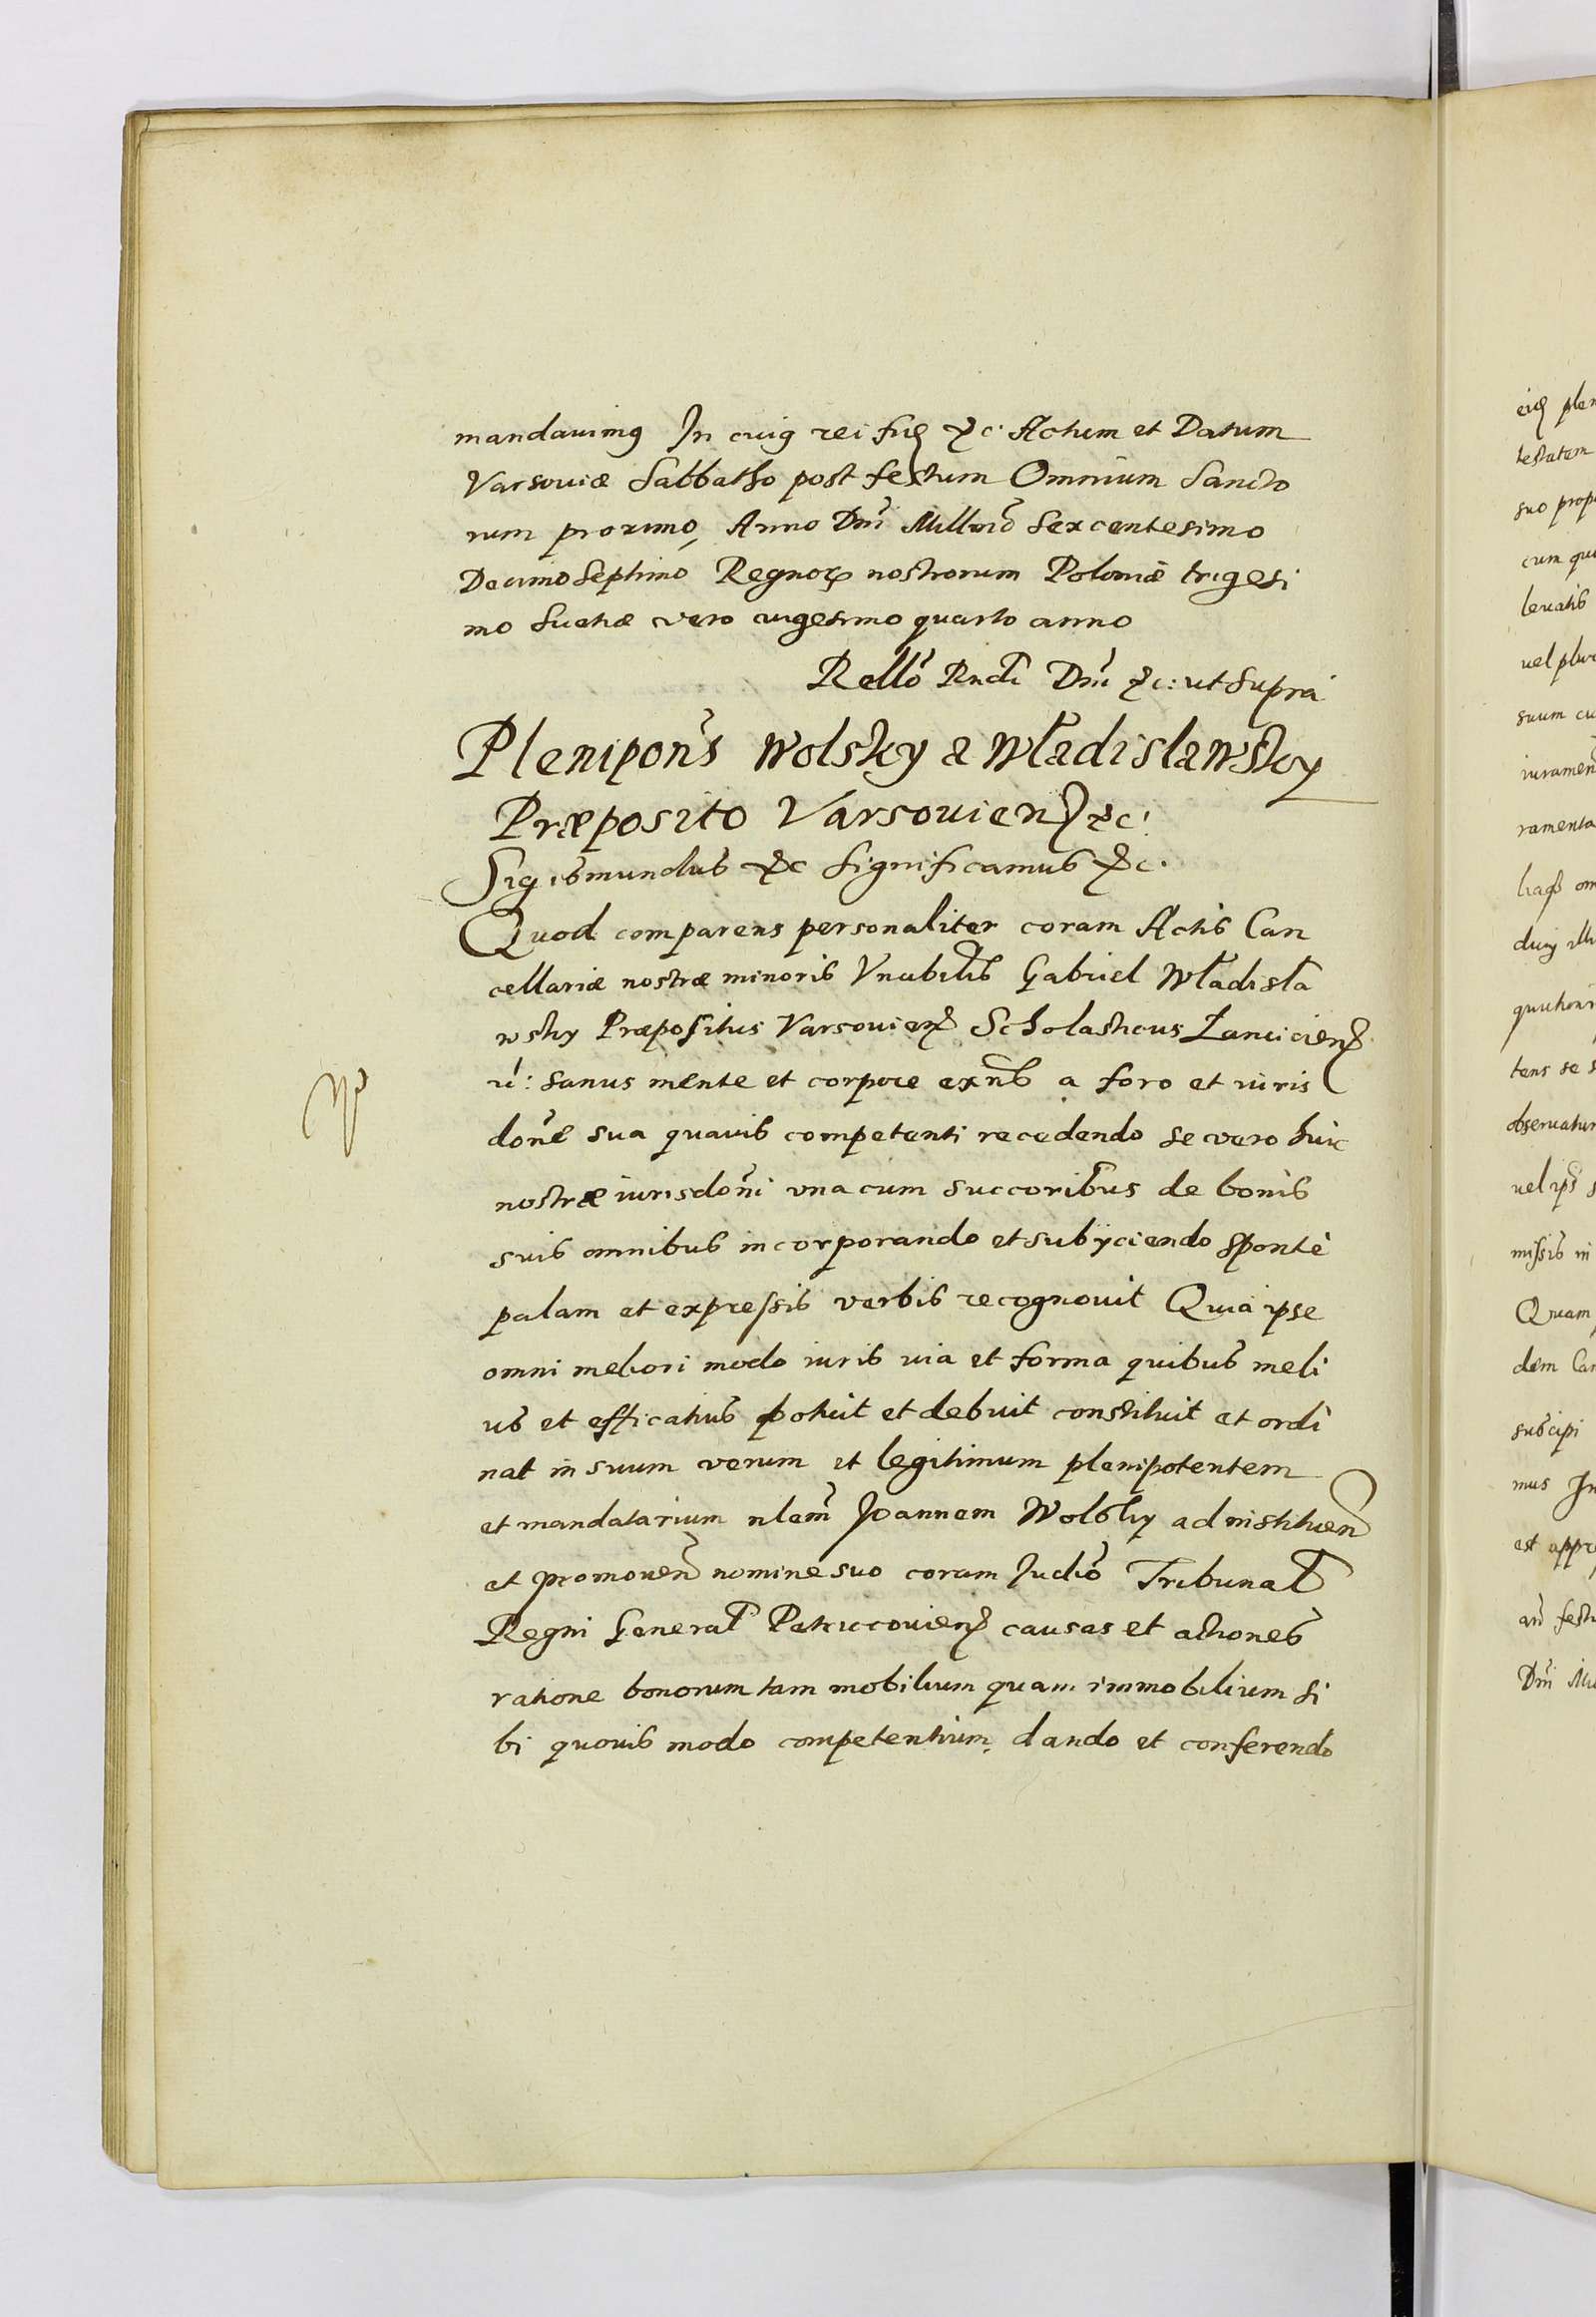 mandauimus In cuius rei fid &c. Actum et Datum
Varsouiæ Sabbatho post festum Omnium Sancto
rum proximo, Anno Dni Millmo Sexcentesimo
Decimo Septimo Regnorum nostrorum Poloniæ trigesi
mo Suetiæ vero vigesimo quarto anno
Rello Rndi Dni &c: ut Supra
Plenipons Wolsky a Władisławsky
Præposito Varsouien &c.
Sigismundus &c Significamus &c.
Quod comparens personaliter coram Actis Can
cellariæ nostræ minoris Vnrabilis Gabriel Władisła
wsky Præpositus Varsouien Scholasticus Lancicien
sanus mente et corpore exns a foro et iuris
done sua quauis competenti recedendo se vero huic
nostræ iurisdoni vna cum succoribus de bonis
suis omnibus incorporando et subijciendo sponte
palam et expressis verbis recognouit Quia ipse
omni meliori modo iuris uia et forma quibus meli
us et efficatius potuit et debuit constituit et ordi
nat in suum verum et legitimum plenipotentem
et mandatarium nlem Joannem Wolsky ad instituen
et promouen nomine suo coram Judio Tribunal
Regni General Petricouien causas et actiones
ratione bonorum tam mobilium quam immobilium si
bi quouis modo competentium, dando et conferendo
eid plen
testatem
suo prop
cum qui
leuatis
uel plur
suum
iuramen
ramenta
om
tens se
obseruatur
uel
missis in
Quam
dem Can
suscipi
mus In
est appr
festu
Dni Mil